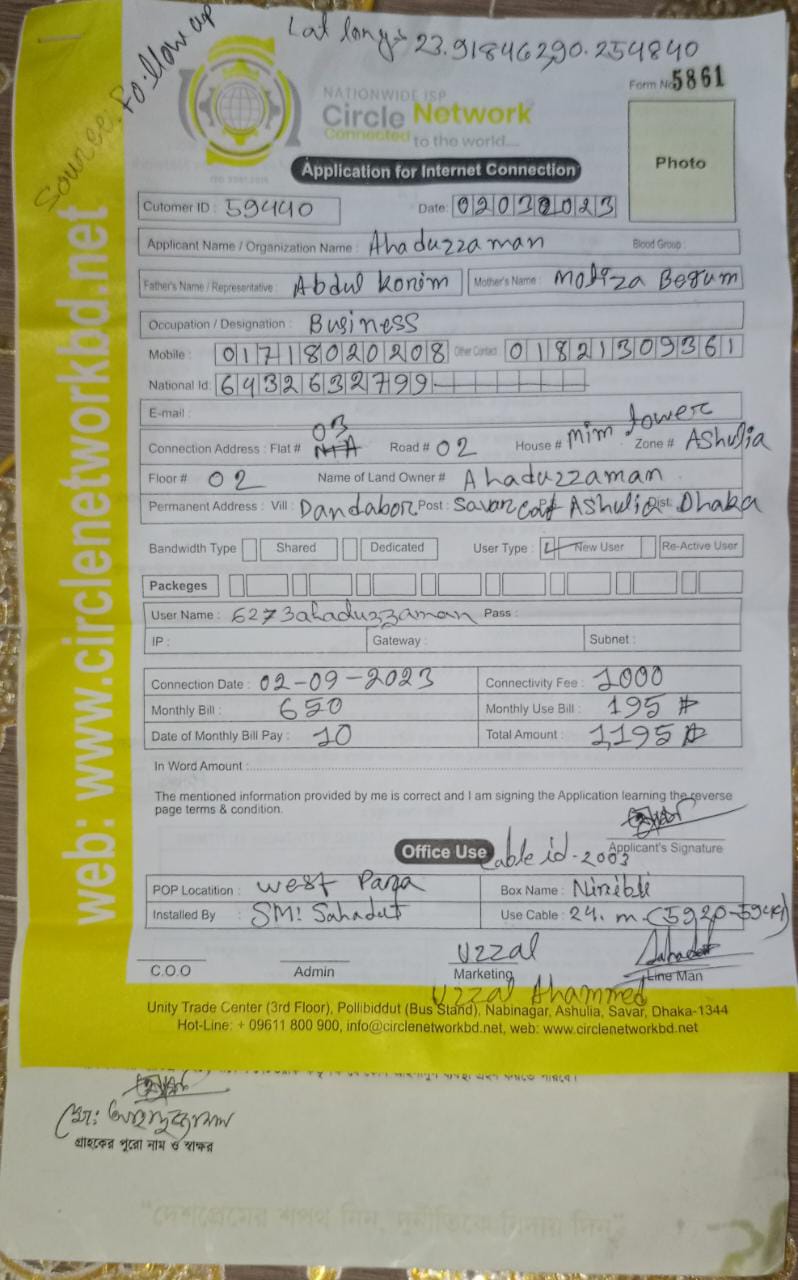 Lat long: 23.918462,90.254840
Source: Follow up
Form No 5861
NATIONWIDE ISP
Circle Network
Connected to the world....
Photo
Application for Internet Connection
Cutomer ID : 59440 Date: 02032023
Applicant Name / Organization Name : Ahaduzzaman Blood Group :
Father's Name / Representative : Abdul Konim Mother's Name : Begum
Occupation / Designation : Business
Mobile : 01718020208 Other Contact : 01821309361
National Id: 6432632799
E-mail :
Connection Address : Flat # 03 N/A Road # 02 House # mim tower Zone # Ashulia
Floor # 02 Name of Land Owner # Ahaduzzaman
Permanent Address : Vill : Dandabor Post : Savar Cat Ashulia Dist: Dhaka
Bandwidth Type Shared Dedicated User Type : New User Re-Active User
Packeges
User Name : 6273ahaduzzaman Pass :
IP : Gateway : Subnet :
Connection Date : 02-09-2023 Connectivity Fee : 1000
Monthly Bill : 650 Monthly Use Bill : 195
Date of Monthly Bill Pay : 10 Total Amount : 1,195
In Word Amount :
The mentioned information provided by me is correct and I am signing the Application learning the reverse
page terms & condition.
Applicant's Signature
Office Use Cable id - 2003
POP Locatition : West Para Box Name : Niribli
Installed By : SM: Sahadut Use Cable : 24. m
C.O.O Admin Uzzal Marketing Line Man
Uzzal Ahammed
Unity Trade Center (3rd Floor), Pollibiddut (Bus Stand), Nabinagar, Ashulia, Savar, Dhaka-1344
Hot-Line: + 09611 800 900, info@circlenetworkbd.net, web: www.circlenetworkbd.net
web: www.circlenetworkbd.net
গ্রাহকের পুরো নাম ও স্বাক্ষর
"দেশপ্রেমের শপথ নিন, দুর্নীতিকে বিদায় দিন"